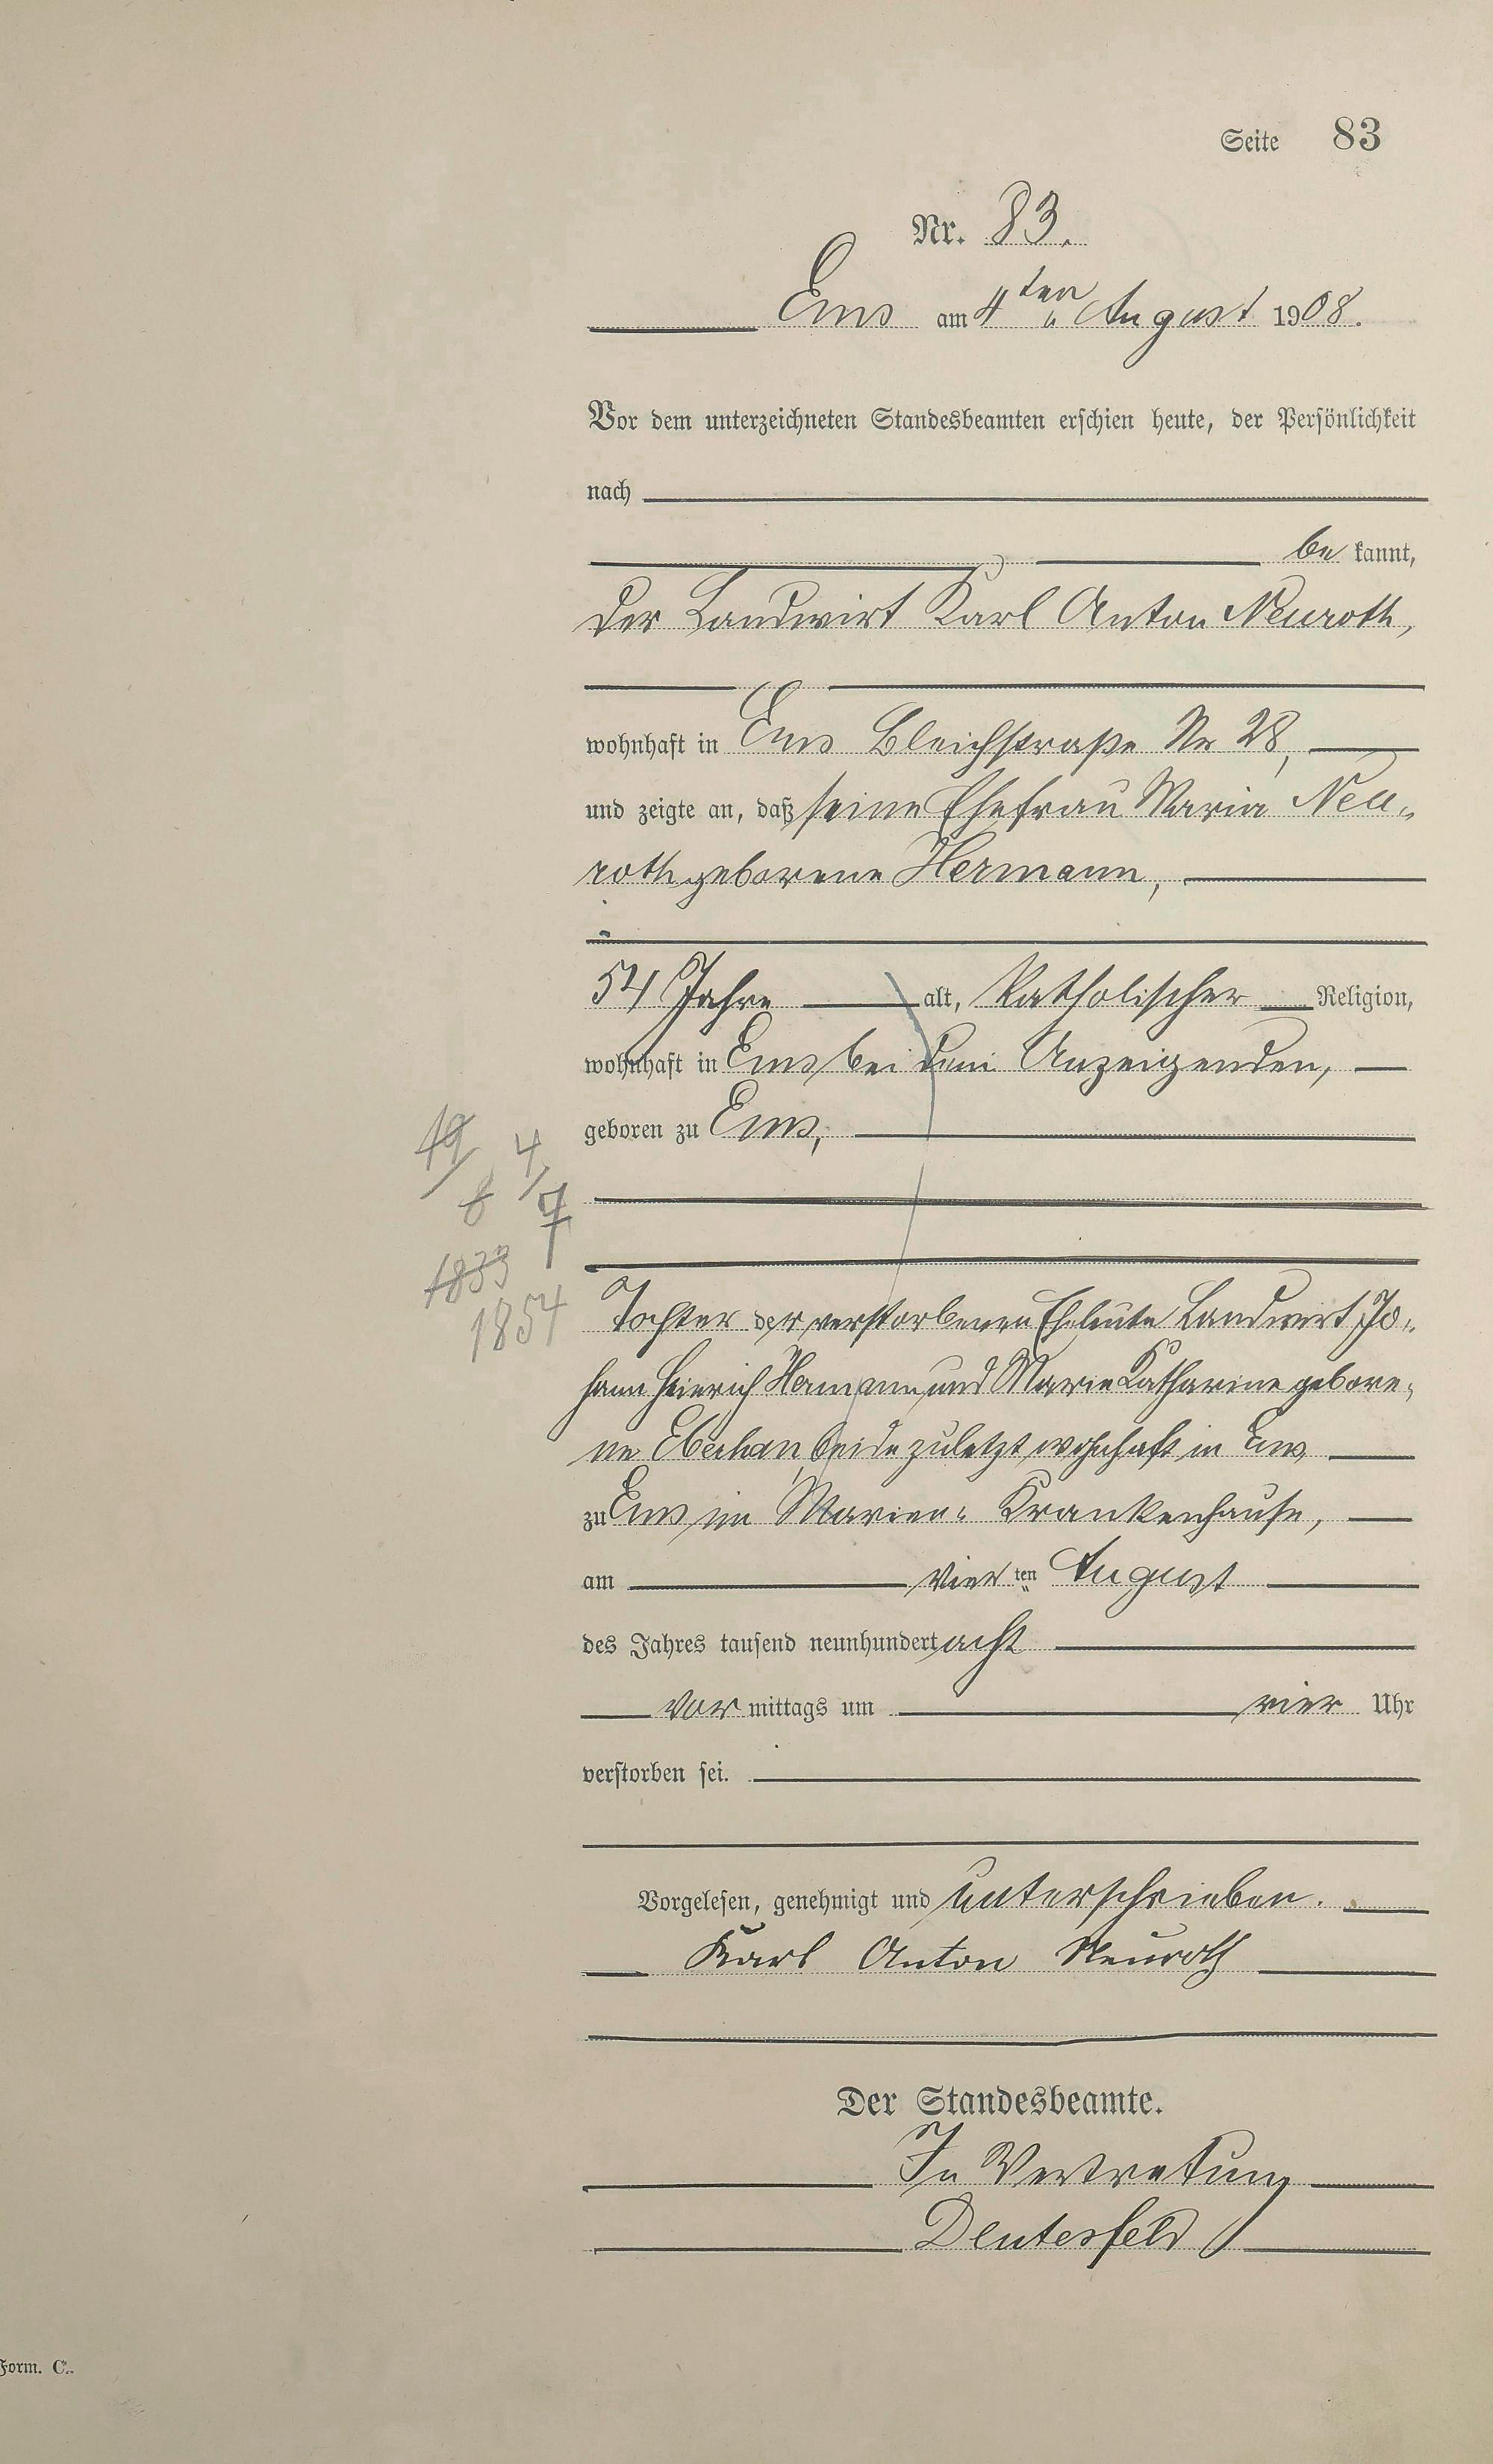 Seite 83
Nr. 83.
Ems am 4ten August 1908.
Vor dem unterzeichneten Standesbeamten erschien heute, der Persönlichkeit
nach
be kannt,
der Landwirt Karl Anton Neuroth,
wohnhaft in Ems Bleichstraße Nr 28,
und zeigte an, daß seine Ehefrau Maria Neu-
roth geborene Hermann,
54 Jahre alt, Katholischer Religion,
wohnhaft in Ems bei dem Anzeigenden,
geboren zu Ems,
19/8 4/7
1833
1854
Tochter der verstorbenen Eheleute Landwirt Jo-
hann Heinrich Hermann und Marie Katharine gebore-
ne beide zuletzt wohnhaft in Ems
zu Ems im Marien- Krankenhause,
am vier ten August
des Jahres tausend neunhundert acht
Vor mittags um vier Uhr
verstorben sei.
Vorgelesen, genehmigt und unterschrieben.
Karl Anton Neuroth
Der Standesbeamte.
In Vertretung
Deutesfeld
Form. C.